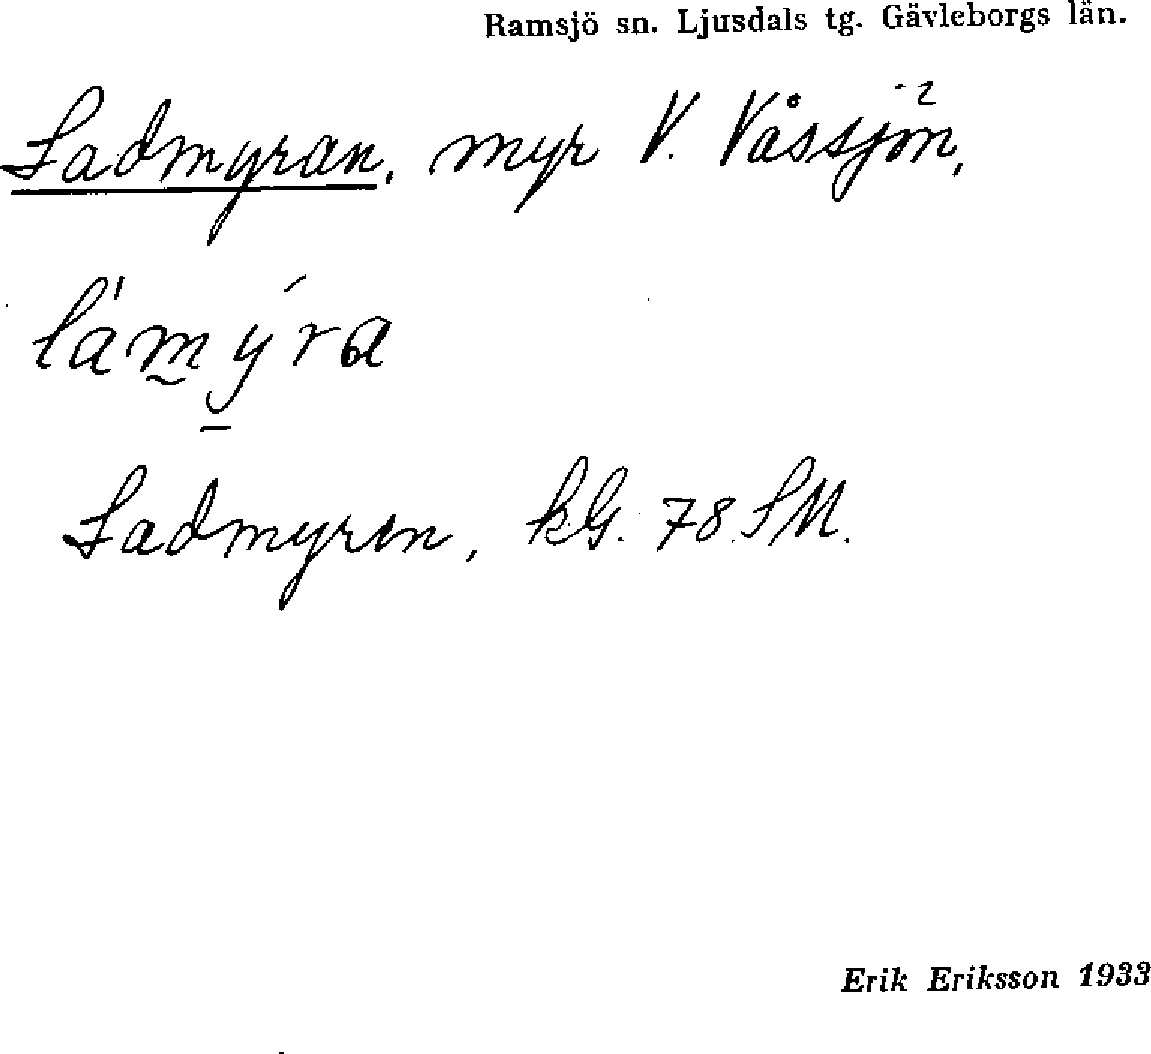 Ramsjö sn. Ljusdals tg. Gävleborgs län.
Ladmyran, myr V. Våssjön,
làmýra
Ladmyren, kG. 78. SM.
Erik Eriksson 1933